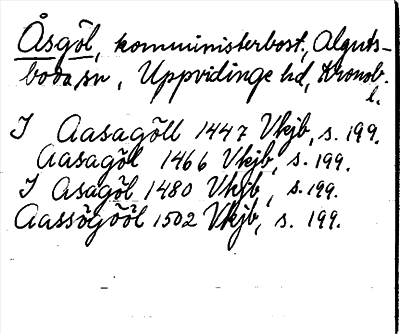 Åsgöl, komministerbost., Alguts-
boda sn, Uppvidinge hd, Kronob.
l.
I Aasagöll 1447 Vkjb, s. 199.
Aasagöll 1466 Vkjb, s. 199.
I Asagöl 1480 Vkjb, s. 199.
Aassögööl 1502 Vkjb, s. 199.